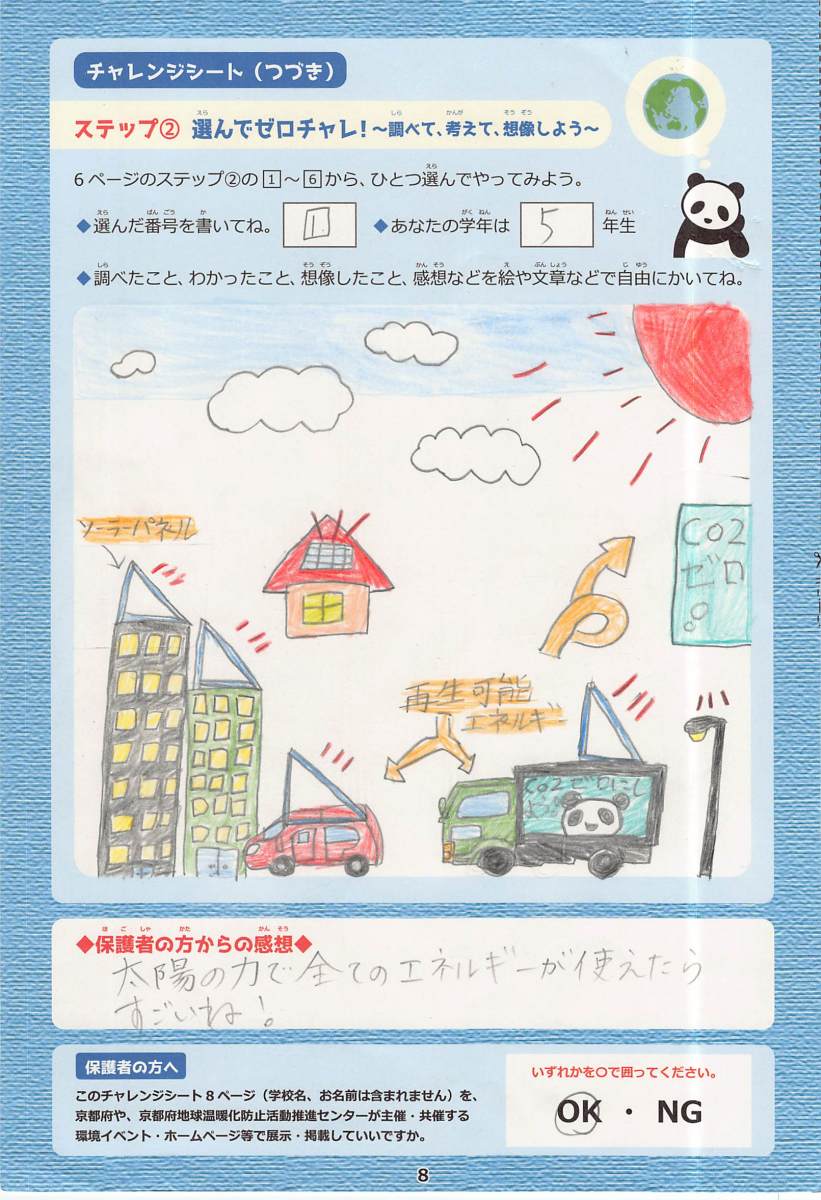 チャレンジシート（つづき）
ステップ② 選んでゼロチャレ！～調べて、考えて、想像しよう～
6ページのステップ②の1～6から、ひとつ選んでやってみよう。
◆選んだ番号を書いてね。 1 ◆あなたの学年は 5 年生
◆調べたこと、わかったこと、想像したこと、感想などを絵や文章などで自由にかいてね。
ソーラーパネル
CO2
ゼロ
再生可能
エネルギー
CO2ゼロにし
◆保護者の方からの感想◆
太陽の力で全てのエネルギーが使えたら
すごいね！
保護者の方へ
このチャレンジシート8ページ（学校名、お名前は含まれません）を、
京都府や、京都府地球温暖化防止活動推進センターが主催・共催する
環境イベント・ホームページ等で展示・掲載していいですか。
いずれかを〇で囲ってください。
OK ・ NG
8